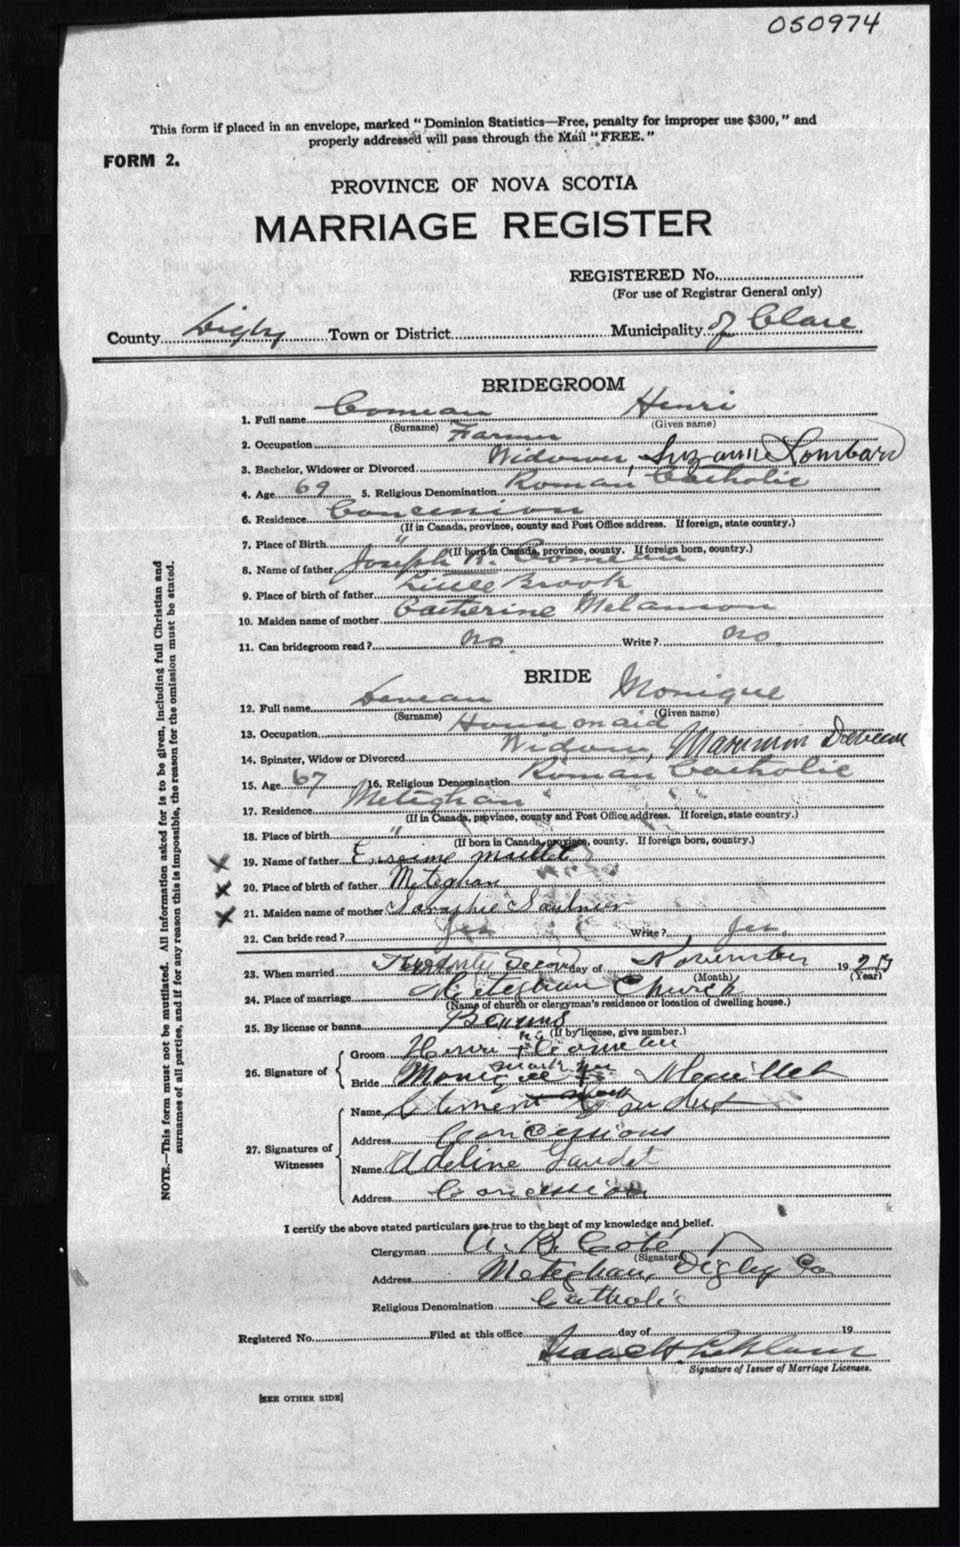 050974
This form if placed in an envelope, marked "Dominion Statistics—Free, penalty for improper use $300," and
properly addressed will pass through the Mail "FREE."
FORM 2.
PROVINCE OF NOVA SCOTIA
MARRIAGE REGISTER
REGISTERED No.
(For use of Registrar General only)
County Digby Town or District Municipality of Clare
BRIDEGROOM
1. Full name Comeau Henri
(Surname) (Given name)
2. Occupation Farmer
3. Bachelor, Widower or Divorced Widower, Suzanne Lombard
4. Age 69 5. Religious Denomination Roman Catholic
6. Residence Concession
(If in Canada, province, county and Post Office address. If foreign, state country.)
7. Place of Birth "
(If born in Canada, province, county. If foreign born, country.)
8. Name of father Joseph R. Comeau
9. Place of birth of father Little Brook
10. Maiden name of mother Catherine Melanson
11. Can bridegroom read? no. Write? no.
BRIDE
12. Full name Deveau Monique
(Surname) (Given name)
13. Occupation
14. Spinster, Widow or Divorced Widow, Deveau
15. Age 67 16. Religious Denomination Roman Catholic
17. Residence Meteghan
(If in Canada, province, county and Post Office address. If foreign, state country.)
18. Place of birth "
(If born in Canada, province, county. If foreign born, country.)
19. Name of father Maillet
20. Place of birth of father Meteghan
21. Maiden name of mother Saulnier
22. Can bride read? Yes Write? Yes.
23. When married Twenty Second day of November 192
(Month) (Year)
24. Place of marriage Meteghan Church
(Name of church or clergyman's residence or location of dwelling house.)
25. By license or banns Banns
(If by license, give number.)
26. Signature of
Groom Henri + Comeau
mark
Bride Monique Maillet
27. Signatures of Witnesses
Name Clement
Address Concessions
Name Adeline Gaudet
Address Concession
I certify the above stated particulars are true to the best of my knowledge and belief.
Clergyman A. B. Coté,
(Signature)
Address Meteghan, Digby Co
Religious Denomination Catholic
Registered No. Filed at this office day of 19
Signature of Issuer of Marriage Licenses.
[SEE OTHER SIDE]
NOTE.—This form must not be mutilated. All information asked for is to be given, including full Christian and
surnames of all parties, and if for any reason this is impossible, the reason for the omission must be stated.